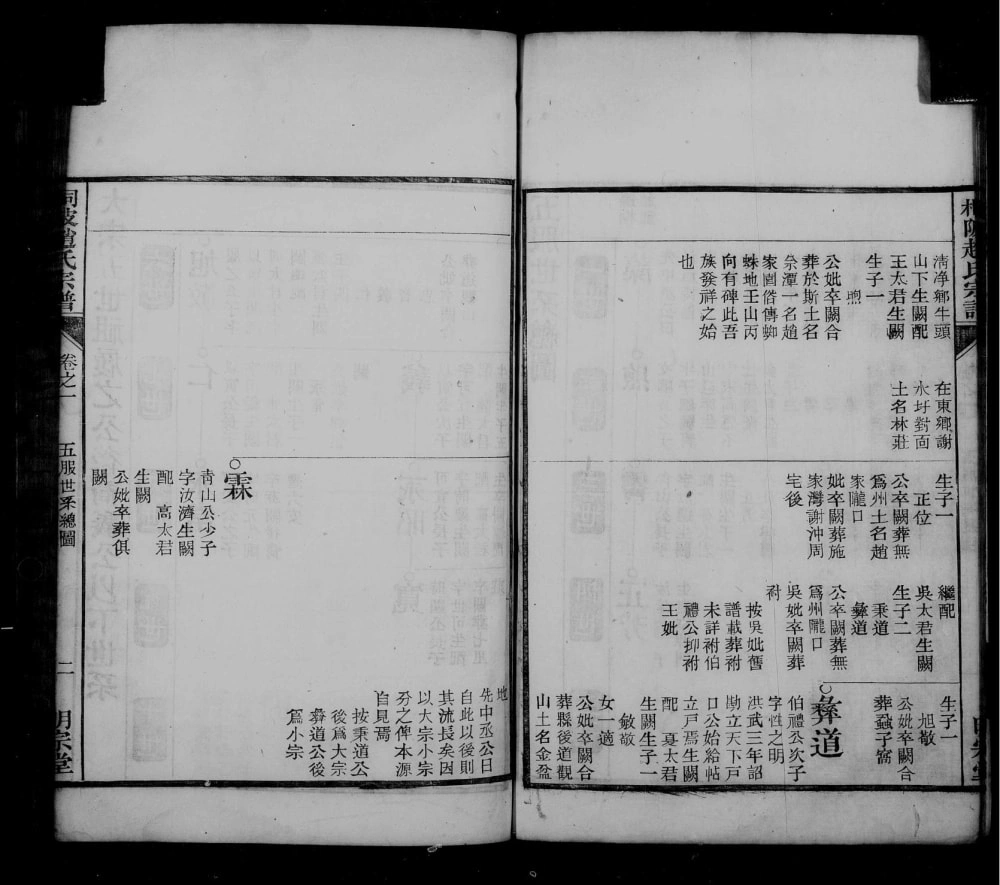 清淨鄉牛頭
山下生闕配
王太君生闕
生子一
煦
公妣卒闕合
葬於斯土名
家圖俗傳蜘
蛛地壬山丙
向有碑此吾
族發祥之始
也
在東鄉謝
水圩對面
土名林莊
生子一
正位
公卒闕葬無
爲州土名趙
家隴口
妣卒闕葬施
家灣謝沖周
宅後
繼配
吳太君生闕
生子二
秉道
彝道
公卒闕葬無
爲州隴口
吳妣卒闕葬
祔
按吳妣舊
譜載葬祔
未詳祔伯
禮公抑祔
王妣
生子一
旭敬
公妣卒闕合
葬蝨子窩
彝道
伯禮公次子
字性之明
洪武三年詔
勘立天下戶
口公始給帖
立戶焉生闕
配 夏太君
生闕生子一
敏敬
女一適
公妣卒闕合
葬縣後道觀
山土名金盆
地
先中丞公曰
自此以後則
其流長矣因
以大宗小宗
分之俾本源
自見焉
按秉道公
後爲大宗
彝道公後
爲小宗
霖
青山公少子
字汝濟生闕
配 高太君
生闕
公妣卒葬俱
闕
桐陂趙氏宗譜
卷之一
五服世系總圖
二
明宗堂